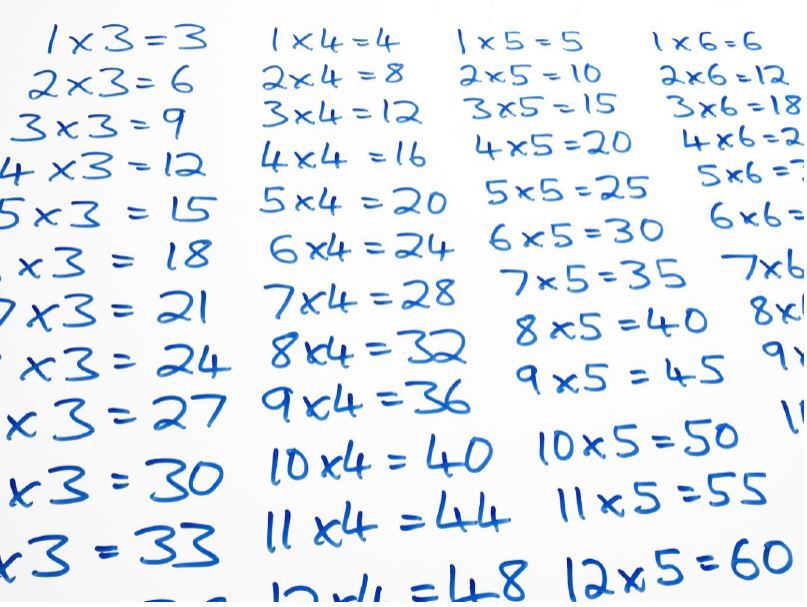 1 x 3 = 3
2 x 3 = 6
3 x 3 = 9
4 x 3 = 12
5 x 3 = 15
x 3 = 18
7 x 3 = 21
x 3 = 24
x 3 = 27
x 3 = 30
x 3 = 33
1 x 4 = 4
2 x 4 = 8
3 x 4 = 12
4 x 4 = 16
5 x 4 = 20
6 x 4 = 24
7 x 4 = 28
8 x 4 = 32
9 x 4 = 36
10 x 4 = 40
11 x 4 = 44
12 x 4 = 48
1 x 5 = 5
2 x 5 = 10
3 x 5 = 15
4 x 5 = 20
5 x 5 = 25
6 x 5 = 30
7 x 5 = 35
8 x 5 = 40
9 x 5 = 45
10 x 5 = 50
11 x 5 = 55
12 x 5 = 60
1 x 6 = 6
2 x 6 = 12
3 x 6 = 18
4 x 6 = 2
5 x 6 =
6 x 6 =
7 x 6
8 x
9